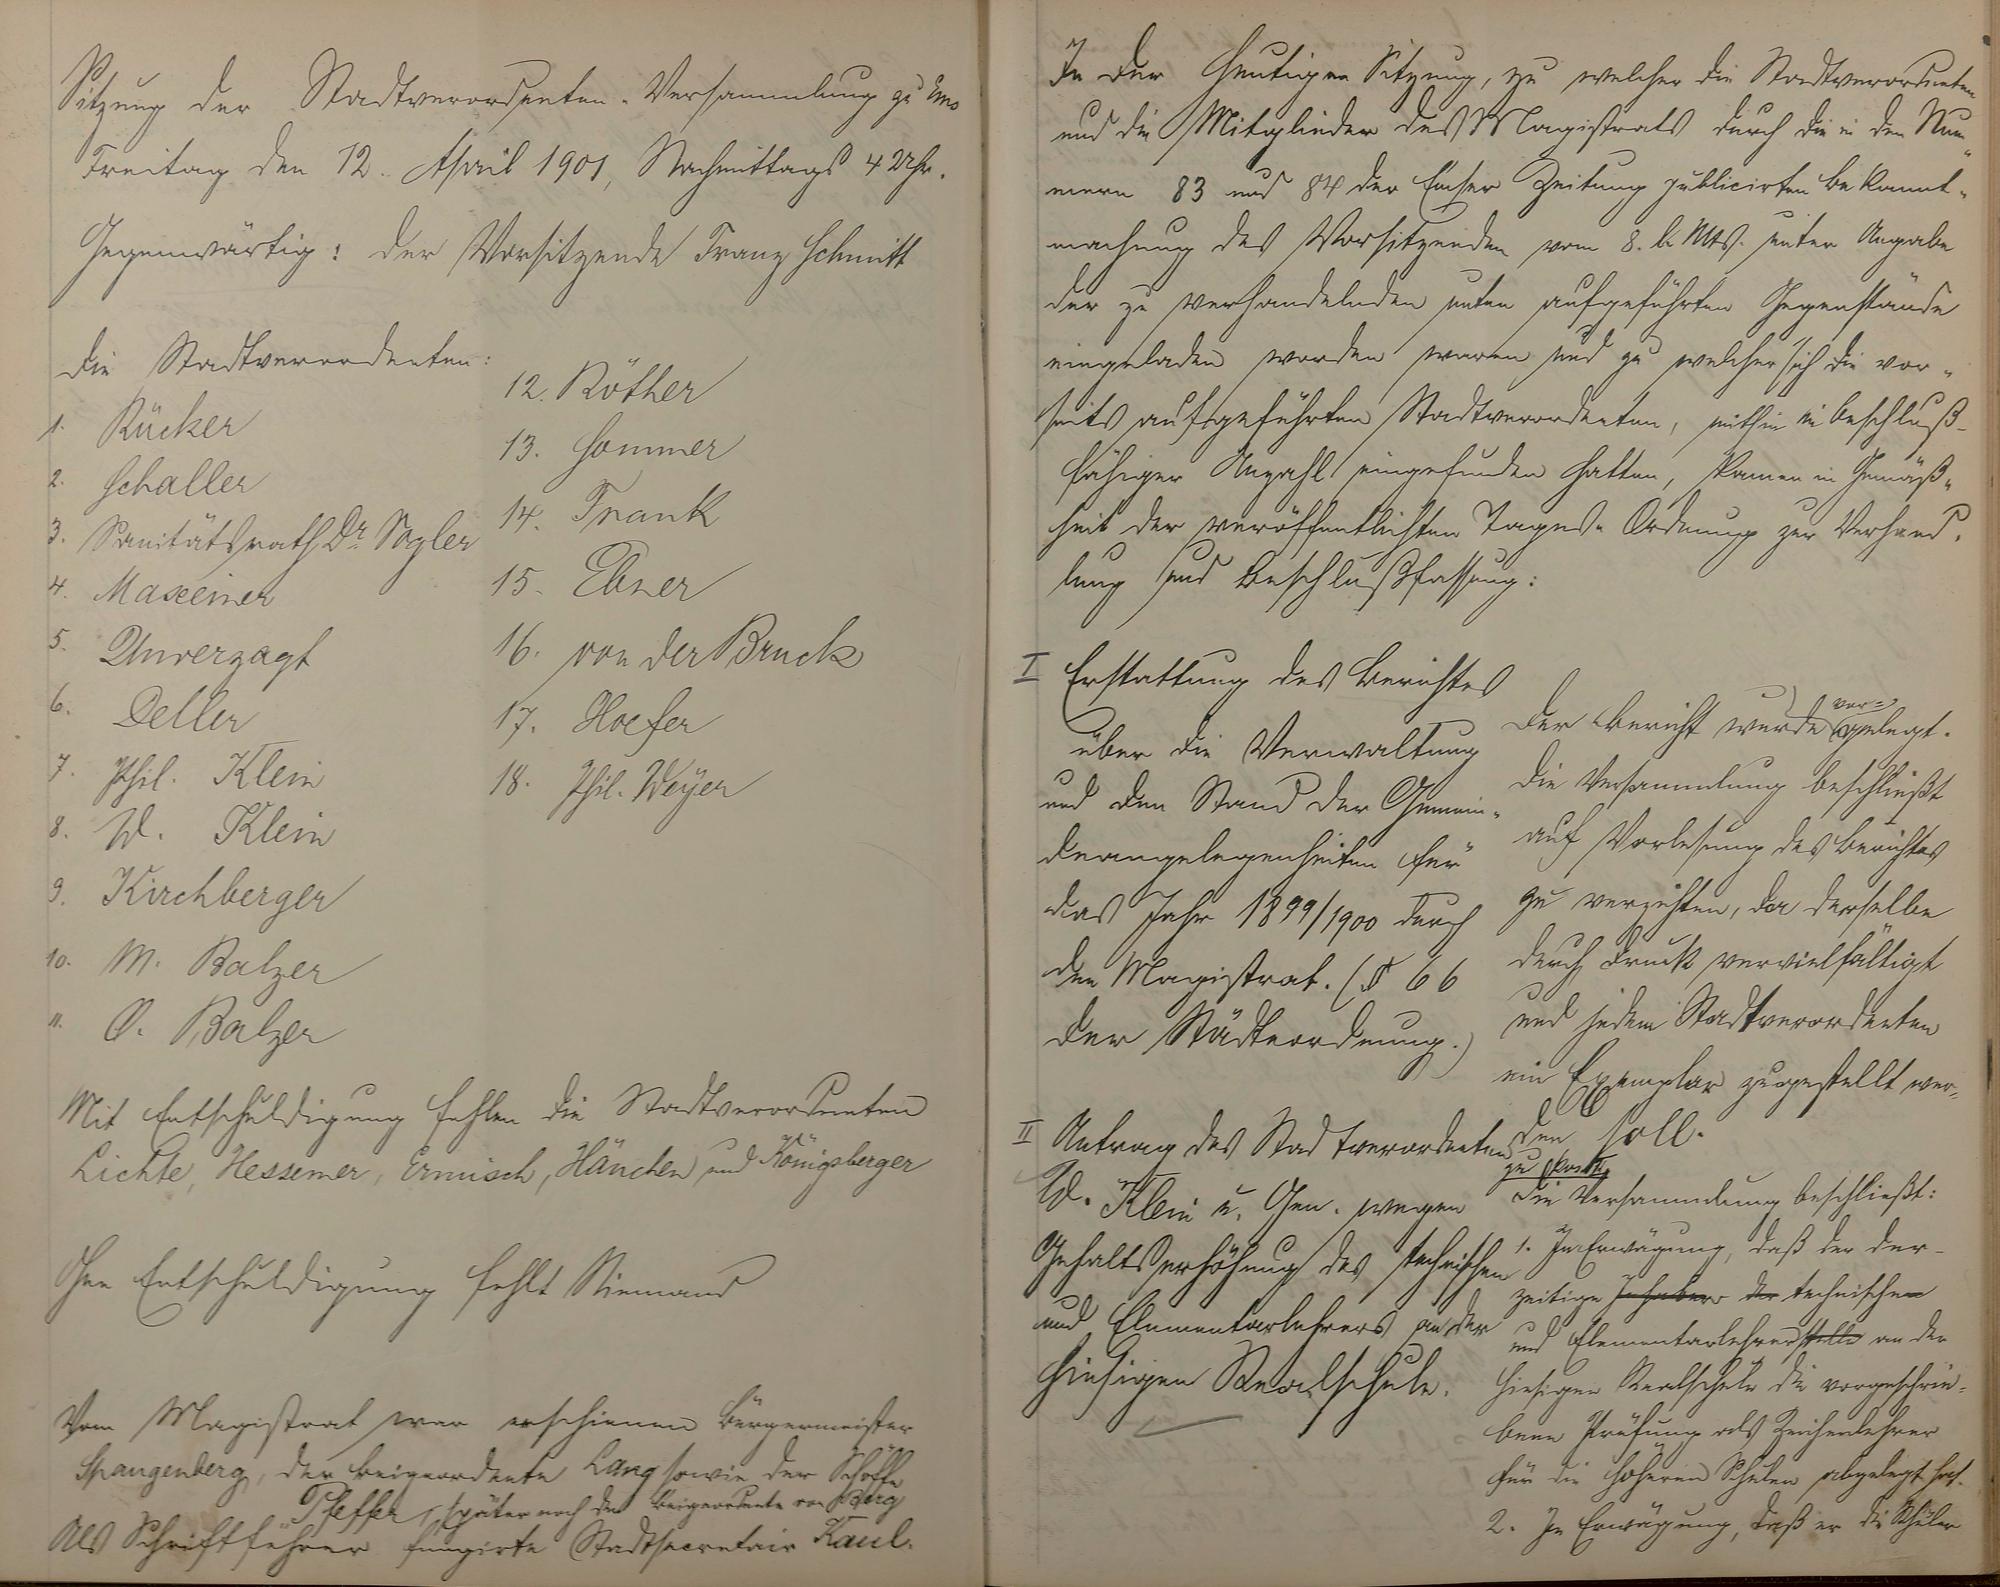 Sitzung der Stadtverordneten-Versammlung zu Ems
Freitag den 12. April 1901, Nachmittags 4 Uhr.
Gegenwärtig: der Vorsitzende Franz Schmitt
die Stadtverordneten:
1. Rücker
2. Schaller
3. Sanitätsrath Dr. Vogler
4. Maxeiner
5. Unverzagt
6. Deller
7. Phil. Klein
8. W. Klein
9. Kirchberger
10. M. Balzer
11. O. Balzer
12. Röther
13. Sommer
14. Frank
15. Ebner
16. von der Bruck
17. Hoefer
18. Phil. Weyer
Mit Entschuldigung fehlen die Stadtverordneten
Lichte, Hessemer, Ermisch, Hänchen und Königsberger
Ohne Entschuldigung fehlt Niemand
Vom Magistrat war erschienen Bürgermeister
Spangenberg, der Beigeordnete Lang sowie der Schöffe
Pfeffer, später noch der Beigeordnete von Berg
Als Schriftführer fungirte Stadtsecretair Kaul.
In der heutigen Sitzung, zu welcher die Stadtverordneten
und die Mitglieder des Magistrats durch die in den Num-
mern 83 und 84 der Emser Zeitung publicirten Bekannt-
machung des Vorsitzenden vom 8. l. Mts. unter Angabe
der zu verhandelnden unten aufgeführten Gegenstände
eingeladen worden waren und zu welcher sich die vor-
seits aufgeführten Stadtverordneten, mithin in beschluß-
fähiger Anzahl eingefunden hatten, kamen in Gemäß-
heit der veröffentlichten Tages-Ordnung zur Verhand-
lung und Beschlußfassung:
I Erstattung des Berichtes
über die Verwaltung
und den Stand der Gemein-
deangelegenheiten für
das Jahr 1899/1900 durch
den Magistrat. (§ 66
der Städteordnung.)
Der Bericht wurde vor-gelegt.
Die Versammlung beschließt
auf Vorlesung des Berichtes
zu verzichten, da derselbe
durch Druck vervielfältigt
und jedem Stadtverordneten
ein Exemplar zugestellt wer-
den soll.
II Antrag des Stadtverordneten
W. Klein u. Gen. wegen
Gehaltserhöhung des technischen
und Elementarlehrers an der
hiesigen Realschule.
zu
Die Versammlung beschließt:
1. In Erwägung, daß der der-
zeitige Inhaber der technischen
und Elementarlehrerstelle an der
hiesigen Realschule die vorgeschrie-
bene Prüfung als Zeichenlehrer
für die höheren Schulen abgelegt hat.
2. In Erwägung, daß er die Schüler